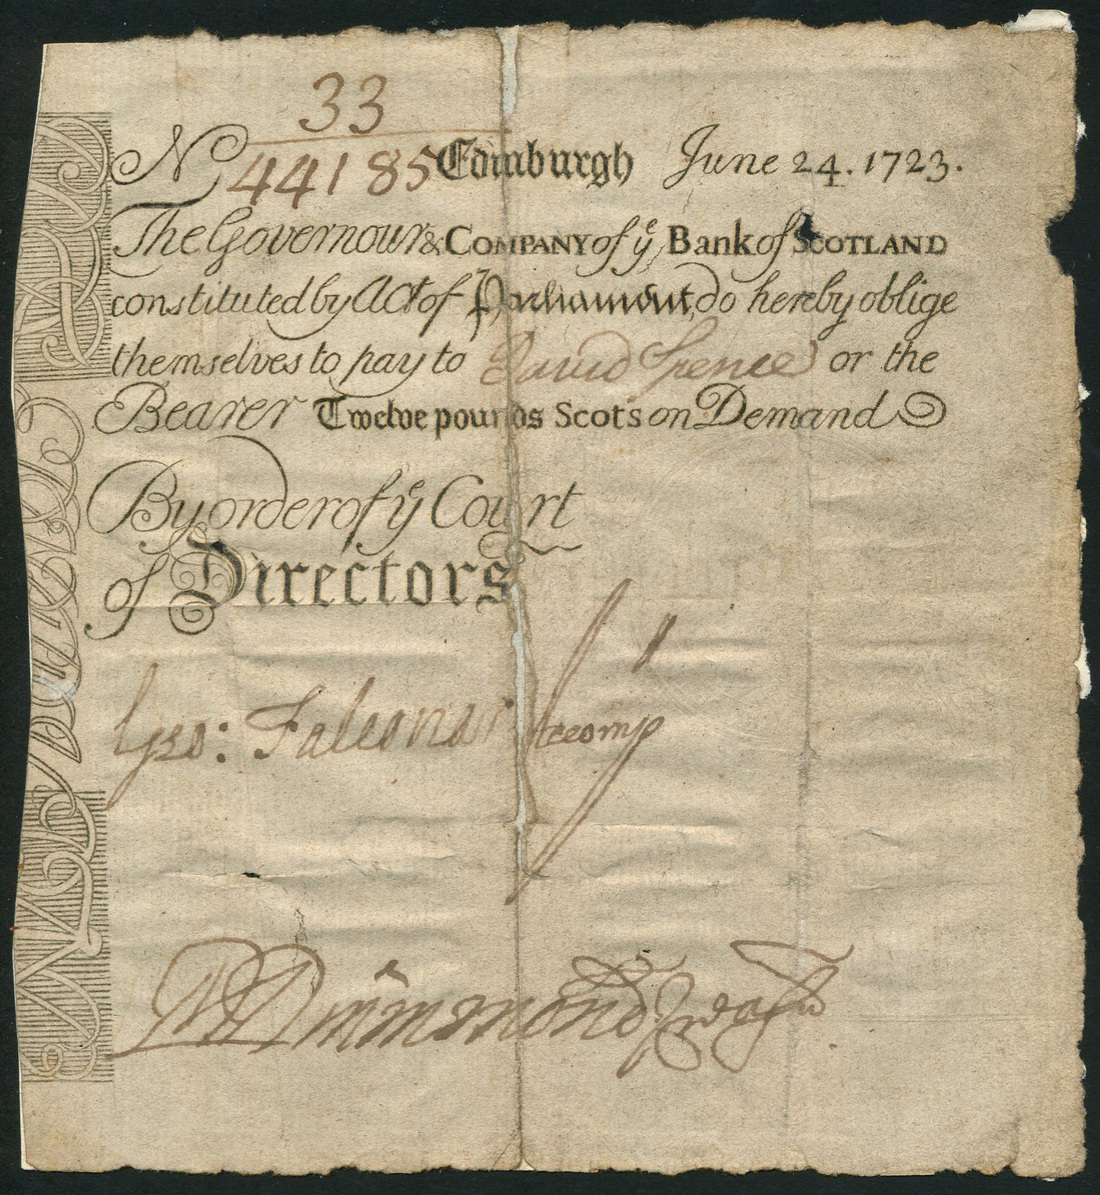 33
No 44185 Edinburgh June 24. 1723.
The Governour & COMPANY of ye Bank of SCOTLAND
constituted by Act of Parliament, do hereby oblige
themselves to pay to David Spence or the
Bearer Twelve pounds Scots on Demand
By order of ye Court
of Directors
Geo: Falconar Accomp
Drummond